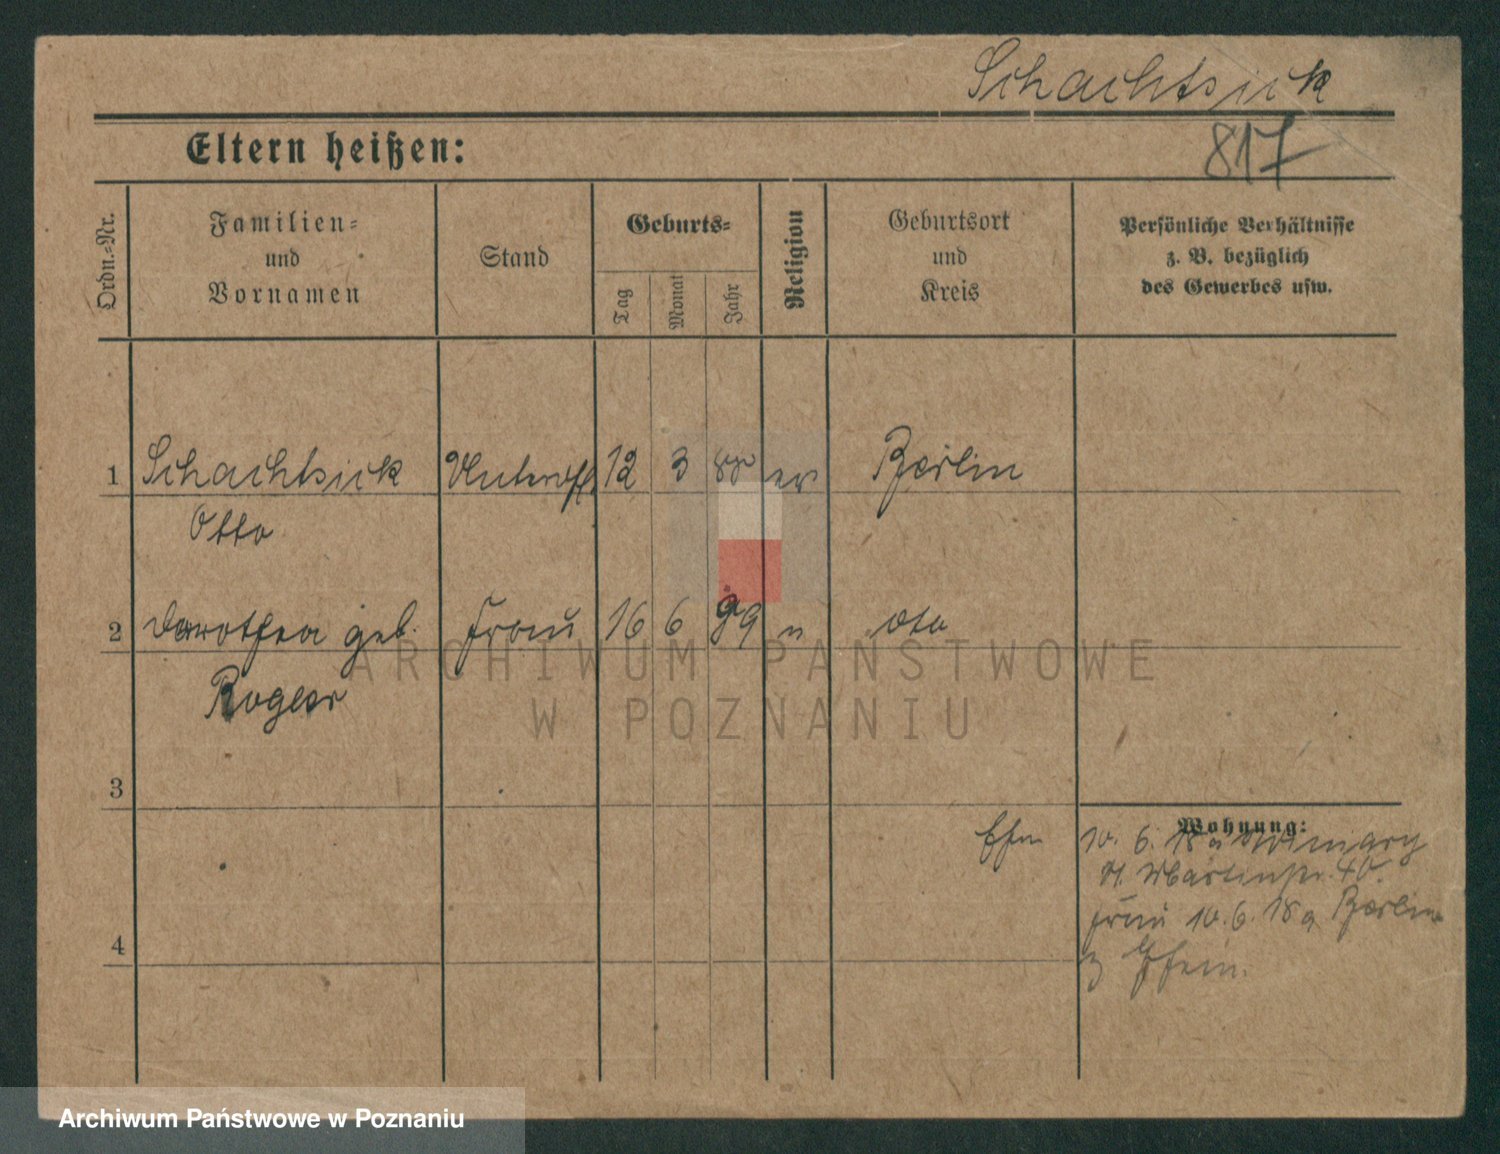 Schachtsick
817
Eltern heißen:
Ordn.-Nr.
Familien-
und
Vornamen
Stand
Geburts-
Tag
Monat
Jahr
Religion
Geburtsort
und
Kreis
Persönliche Verhältnisse
z. B. bezüglich
des Gewerbes usw.
1 Schachtsick Unteroff. 12 3 88 ev Berlin
Otto
2 Dorothea geb. Frau 16 6 89 " dto
ARCHIWUM PAŃSTWOWE
W POZNANIU
3
Wohnung:
10. 6. 18 a
St. Martinstr. 40.
Frau 10. 6. 18 a Berlin
4
Archiwum Państwowe w Poznaniu